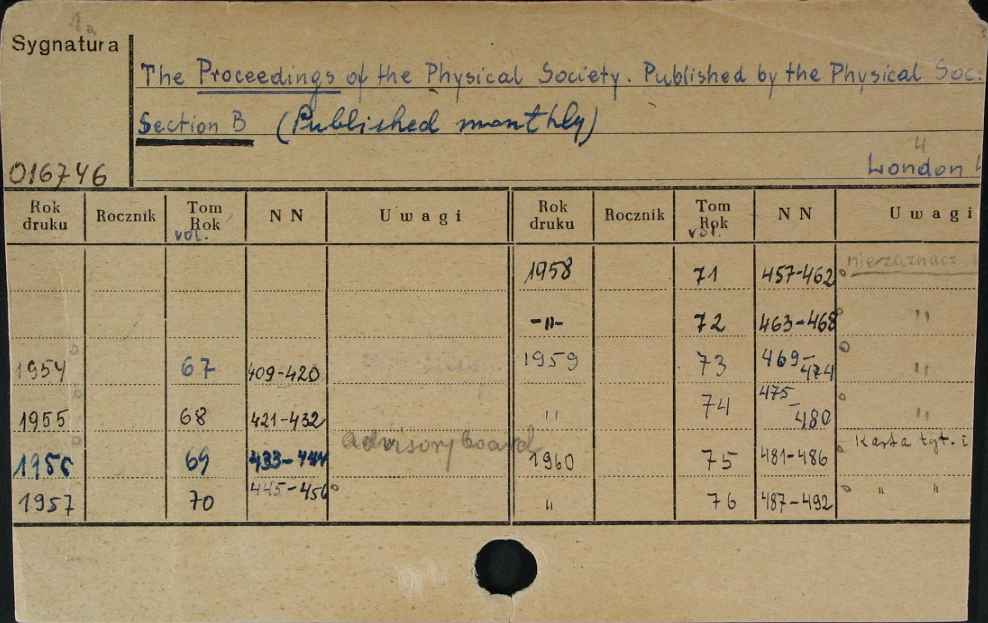 Sygnatura
The Proceedings of the Physical Society. Published by the Physical Soc.
Section B (Published monthly)
4
016746 London
Rok druku Rocznik Tom Rok vol. N N Uwagi Rok druku Rocznik Tom Rok vol. N N Uwagi
1958 71 457-462
-"- 72 463-468 "
1954 67 409-420 1959 73 469-474 "
1955 68 421-432 " 74 475-480 "
1956 69 433-444 advisory board 1960 75 481-486 Karta tyt. i
1957 70 445-456 " 76 487-492 " "